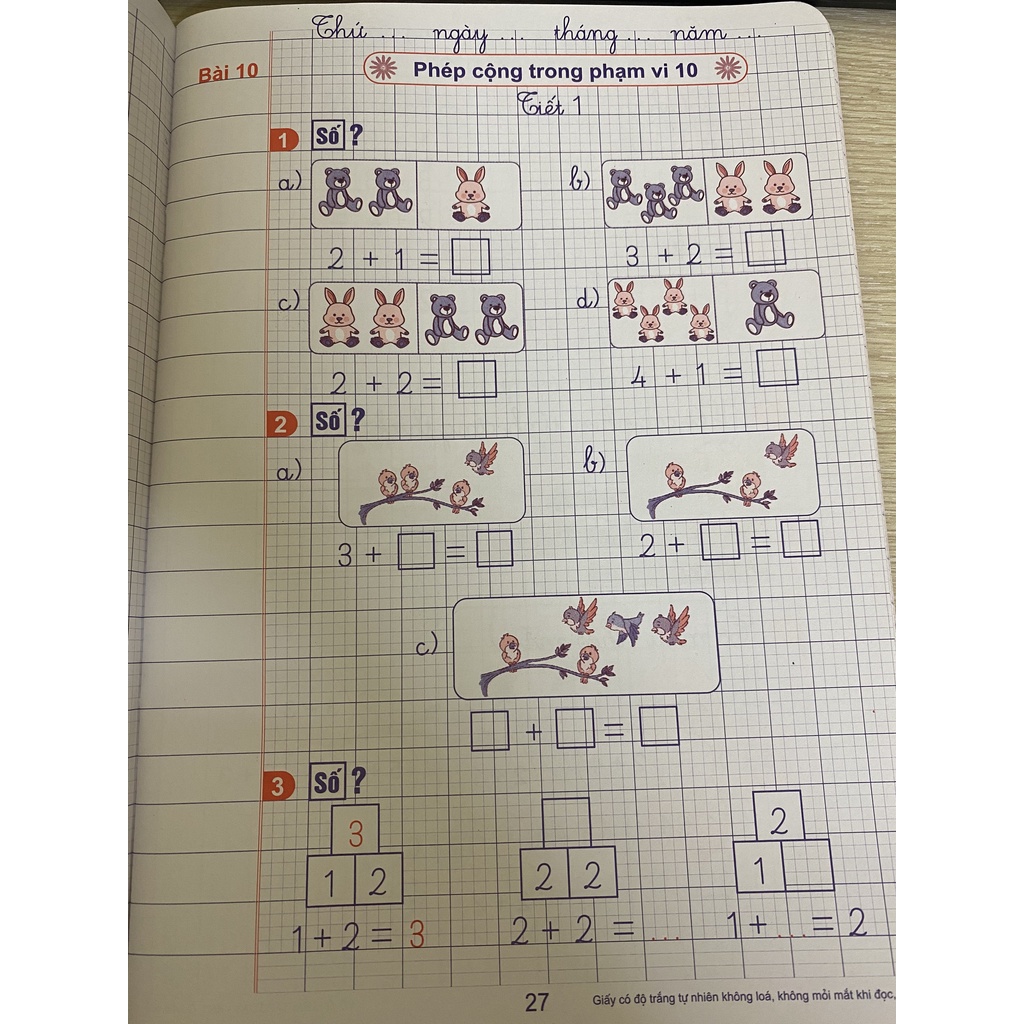 Thứ ... ngày ... tháng ... năm ...
Bài 10
Phép cộng trong phạm vi 10
Tiết 1
1 Số ?
a) b)
2 + 1 = □ 3 + 2 = □
c) d)
2 + 2 = □ 4 + 1 = □
2 Số ?
a) b)
3 + □ = □ 2 + □ = □
c)
□ + □ = □
3 Số ?
3 2
1 2 2 2 1
1 + 2 = 3 2 + 2 = ... 1 + ... = 2
27 Giấy có độ trắng tự nhiên không loá, không mỏi mắt khi đọc,